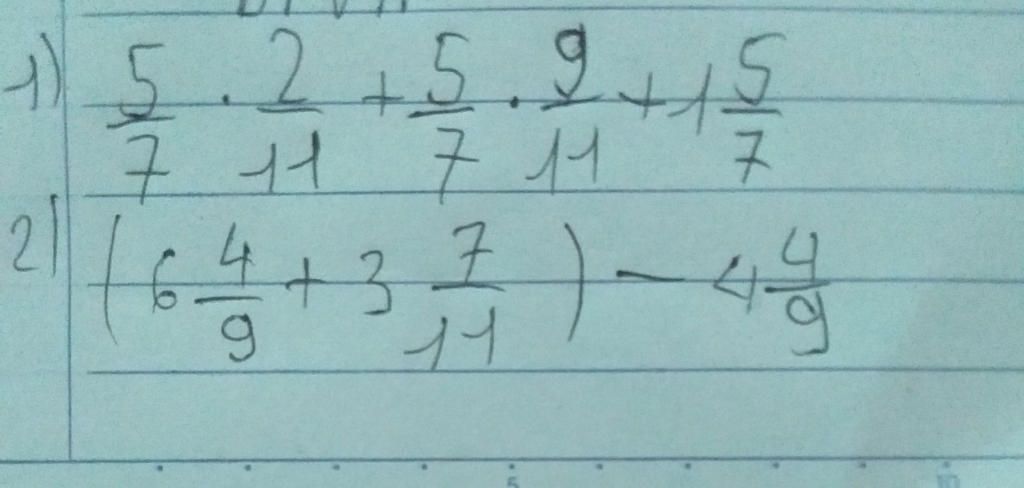 1) 5/7 · 2/11 + 5/7 · 9/11 + 1 5/7
2) (6 4/9 + 3 7/11) - 4 4/9
5 10